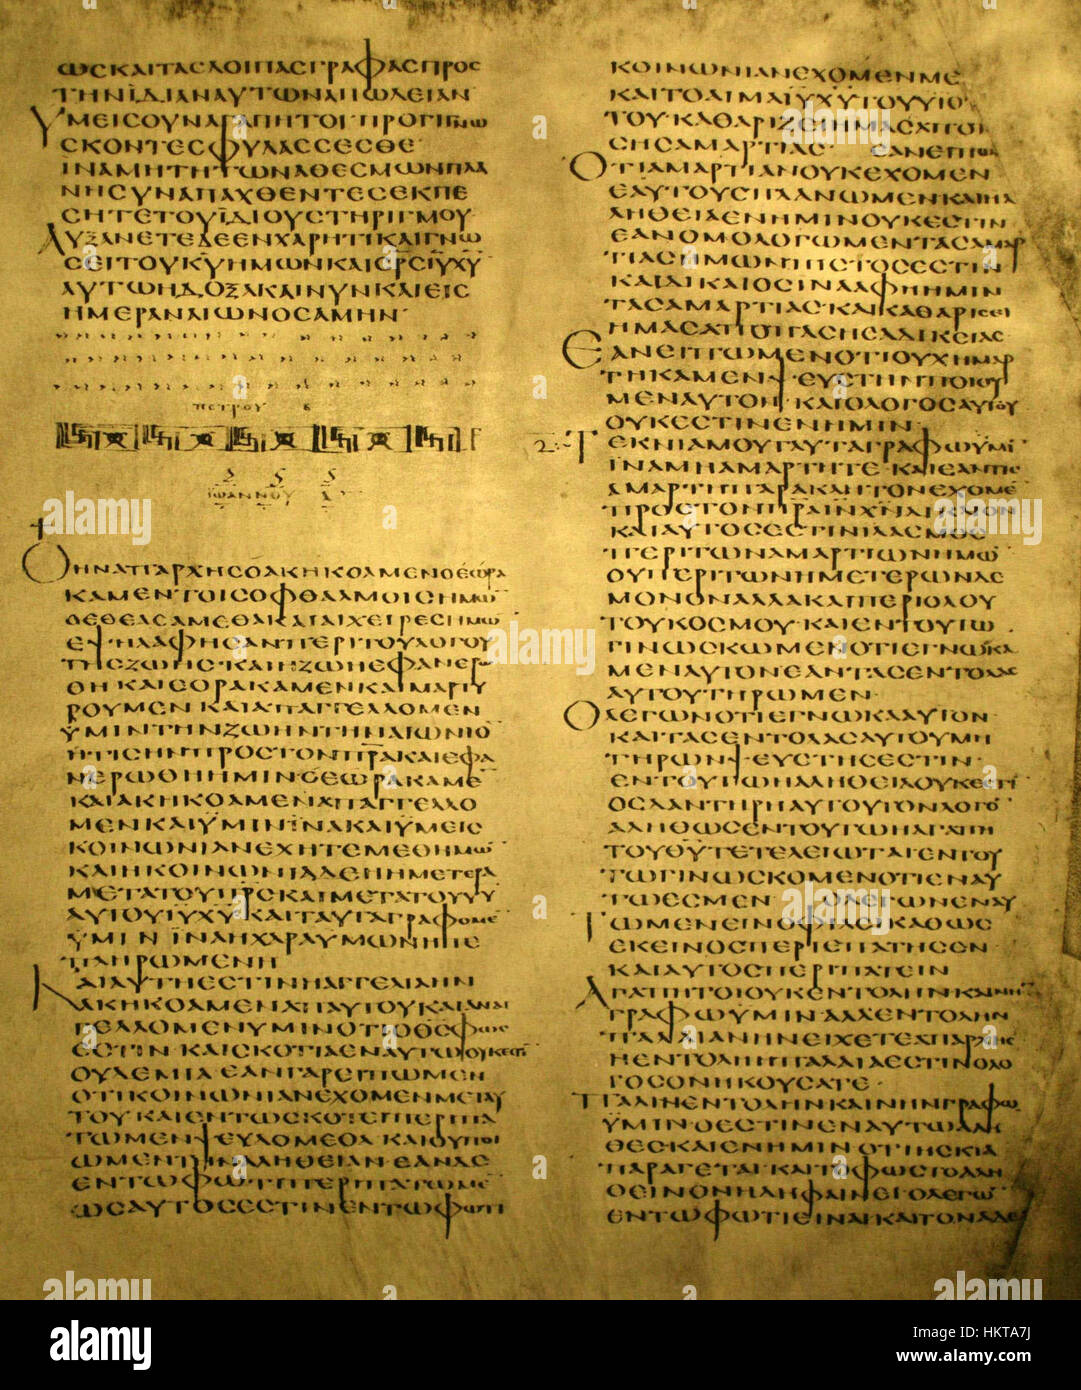 ωϲκαιταϲλοιπαϲγραφαϲπροϲ
τηνϊδιαναυτωναπωλειαν
Υμειϲουναγαπητοιπρογινω
ϲκοντεϲφυλαϲϲεϲθε
ϊναμητητωναθεϲμωνπλα
νηϲυναπαχθεντεϲεκπε
ϲητετουϊδιουϲτηριγμου
Αυξανετεδεενχαριτικαιγνω
ϲειτουκυημωνκαιϲρϲιυχυ
αυτωηδοξακαινυνκαιειϲ
ημεραναιωνοϲαμην
πετρου β
ϊωαννου α
Οηναπαρχηϲοακηκοαμενοεωρα
καμεντοιϲοφθαλμοιϲημω
οεθεαϲαμεθακαιαιχειρεϲημω
εψηλαφηϲανπεριτουλογου
τηϲζωηϲκαιηζωηεφανερω
θηκαιεορακαμενκαιμαρτυ
ρουμενκαιαπαγγελλομεν
ϋμιντηνζωηντηναιωνιο
ητιϲηνπροϲτονπρακαιεφα
νερωθηημινοεωρακαμε
καιακηκοαμεναπαγγελλο
μενκαιϋμινϊνακαιϋμειϲ
κοινωνιανεχητεμεθημω
καιηκοινωνιαδεημετερα
μετατουπρϲκαιμετατουυυ
αυτουιυχυκαιταυταγραφομε
ϋμινϊναηχαραυμωνηπε
πληρωμενη
Καιαυτηεϲτινηαγγελιαην
ακηκοαμεναπαυτουκαιαναγ
γελλομενυμινοτιοθϲφωϲ
εϲτινκαιϲκοτιαεναυτωουκεϲτι
ουδεμιαεανγαρειπωμεν
οτικοινωνιανεχομενμεταυ
τουκαιεντωϲκοτειπεριπα
τωμενψευδομεθακαιουποι
ωμεντηναληθειανεανδε
εντωφωτιπεριπατωμε
ωϲαυτοϲεϲτινεντωφωτι
κοινωνιανεχομενμε
καιτοαιμαιυχυτουυιο
τουκαθαριζειημαϲαποπα
ϲηϲαμαρτιαϲ εανειπωμ
Οτιαμαρτιανουκεχομεν
εαυτουϲπλανωμενκαιηα
ληθειαενημινουκεϲτιν
εανομολογωμενταϲαμαρ
τιαϲημωνπιϲτοϲεϲτιν
καιδικαιοϲινααφηημιν
ταϲαμαρτιαϲκαικαθαριϲει
ημαϲαποπαϲηϲαδικειαϲ
Εανειπωμενοτιουχημαρ
τηκαμενψευϲτηνποιου
μεναυτονκαιολογοϲαυτου
ουκεϲτινενημιν
2 Τεκνιαμουταυταγραφωυμι
ϊναμηαμαρτητεκαιεαντιϲ
αμαρτηπαρακλητονεχομε
προϲτονπραινχνδικαιον
καιαυτοϲεϲτινιλαϲμοϲ
περιτωναμαρτιωνημω
ουπεριτωνημετερωνδε
μονοναλλακαιπεριολου
τουκοϲμουκαιεντουτω
γινωϲκωμενοτιεγνωκα
μεναυτονεανταϲεντολαϲ
αυτουτηρωμεν
Ολεγωνοτιεγνωκααυτον
καιταϲεντολαϲαυτουμη
τηρωνψευϲτηϲεϲτιν
εντουτωηαληθειαουκεϲτι
οϲδαντηρηαυτουτονλογο
αληθωϲεντουτωηαγαπη
τουθυτετελειωταιεντου
τωγινωϲκομενοτιεναυ
τωεϲμεν ολεγωνεναυ
Τωμενεινοφιλεικαθωϲ
εκεινοϲπεριεπατηϲεν
καιαυτοϲπεριπατειν
Αγαπητοιουκεντοληνκαινη
γραφωυμιναλλεντολην
παλαιανηνειχετεαπαρχηϲ
ηεντοληηπαλαιαεϲτινολο
γοϲονηκουϲατε
Παλινεντοληνκαινηνγραφω
ϋμινοεϲτινεναυτωαλη
θεϲκαιενημινοτιηϲκια
παραγεταικαιτοφωϲτοαλη
θεινονηδηφαινειολεγω
εντωφωτιειναικαιτοναδελ
alamy
HKTA7J
www.alamy.com